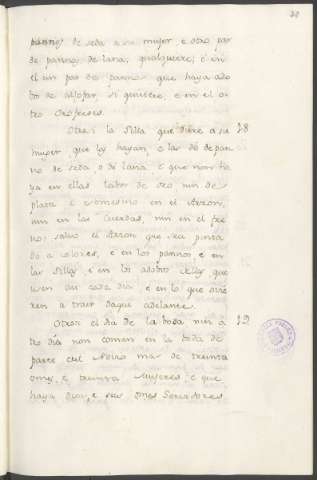 20
pannos de seda a su mujer, e otro par
de pannos de lana, qualquiere; e en
el un par de pannos que haya ado
bo de alfojar si quisiere, e en el o
tro Orofreses.
Otrosi la silla que diere a su
mujer que
no de seda, o de lana, e que non ha
ya en ellas labor de oro nin de
plata e eso mesmo en el Arzon,
nin en las cuerdas, nin en el fre
no; salvo el Arzon que sea pinta
do a colores, e en los pannos e en
las sillas, e en los adobos dellas que
usen un cada dia, e en lo que ovie
ren a traer daqui adelante.
Otrosi el dia de la boda nin o
tro dia non coman en la boda de
parte del Novio mas de treinta
omes, e treinta mujeres, e que
haya diez, e seis omes servidores,
28
29